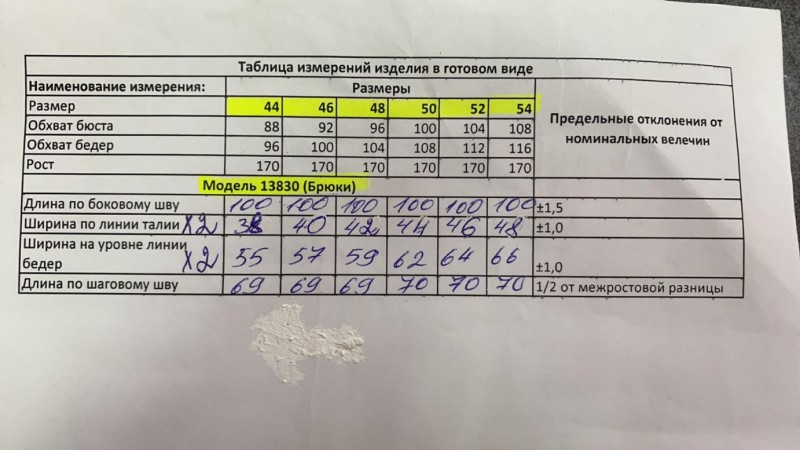 Таблица измерений изделия в готовом виде
Наименование измерения: Размеры Предельные отклонения от номинальных велечин
Размер 44 46 48 50 52 54
Обхват бюста 88 92 96 100 104 108
Обхват бедер 96 100 104 108 112 116
Рост 170 170 170 170 170 170
Модель 13830 (Брюки)
Длина по боковому шву 100 100 100 100 100 100 ±1,5
Ширина по линии талии х2 38 40 42 44 46 48 ±1,0
Ширина на уровне линии
бедер х2 55 57 59 62 64 66 ±1,0
Длина по шаговому шву 69 69 69 70 70 70 1/2 от межростовой разницы